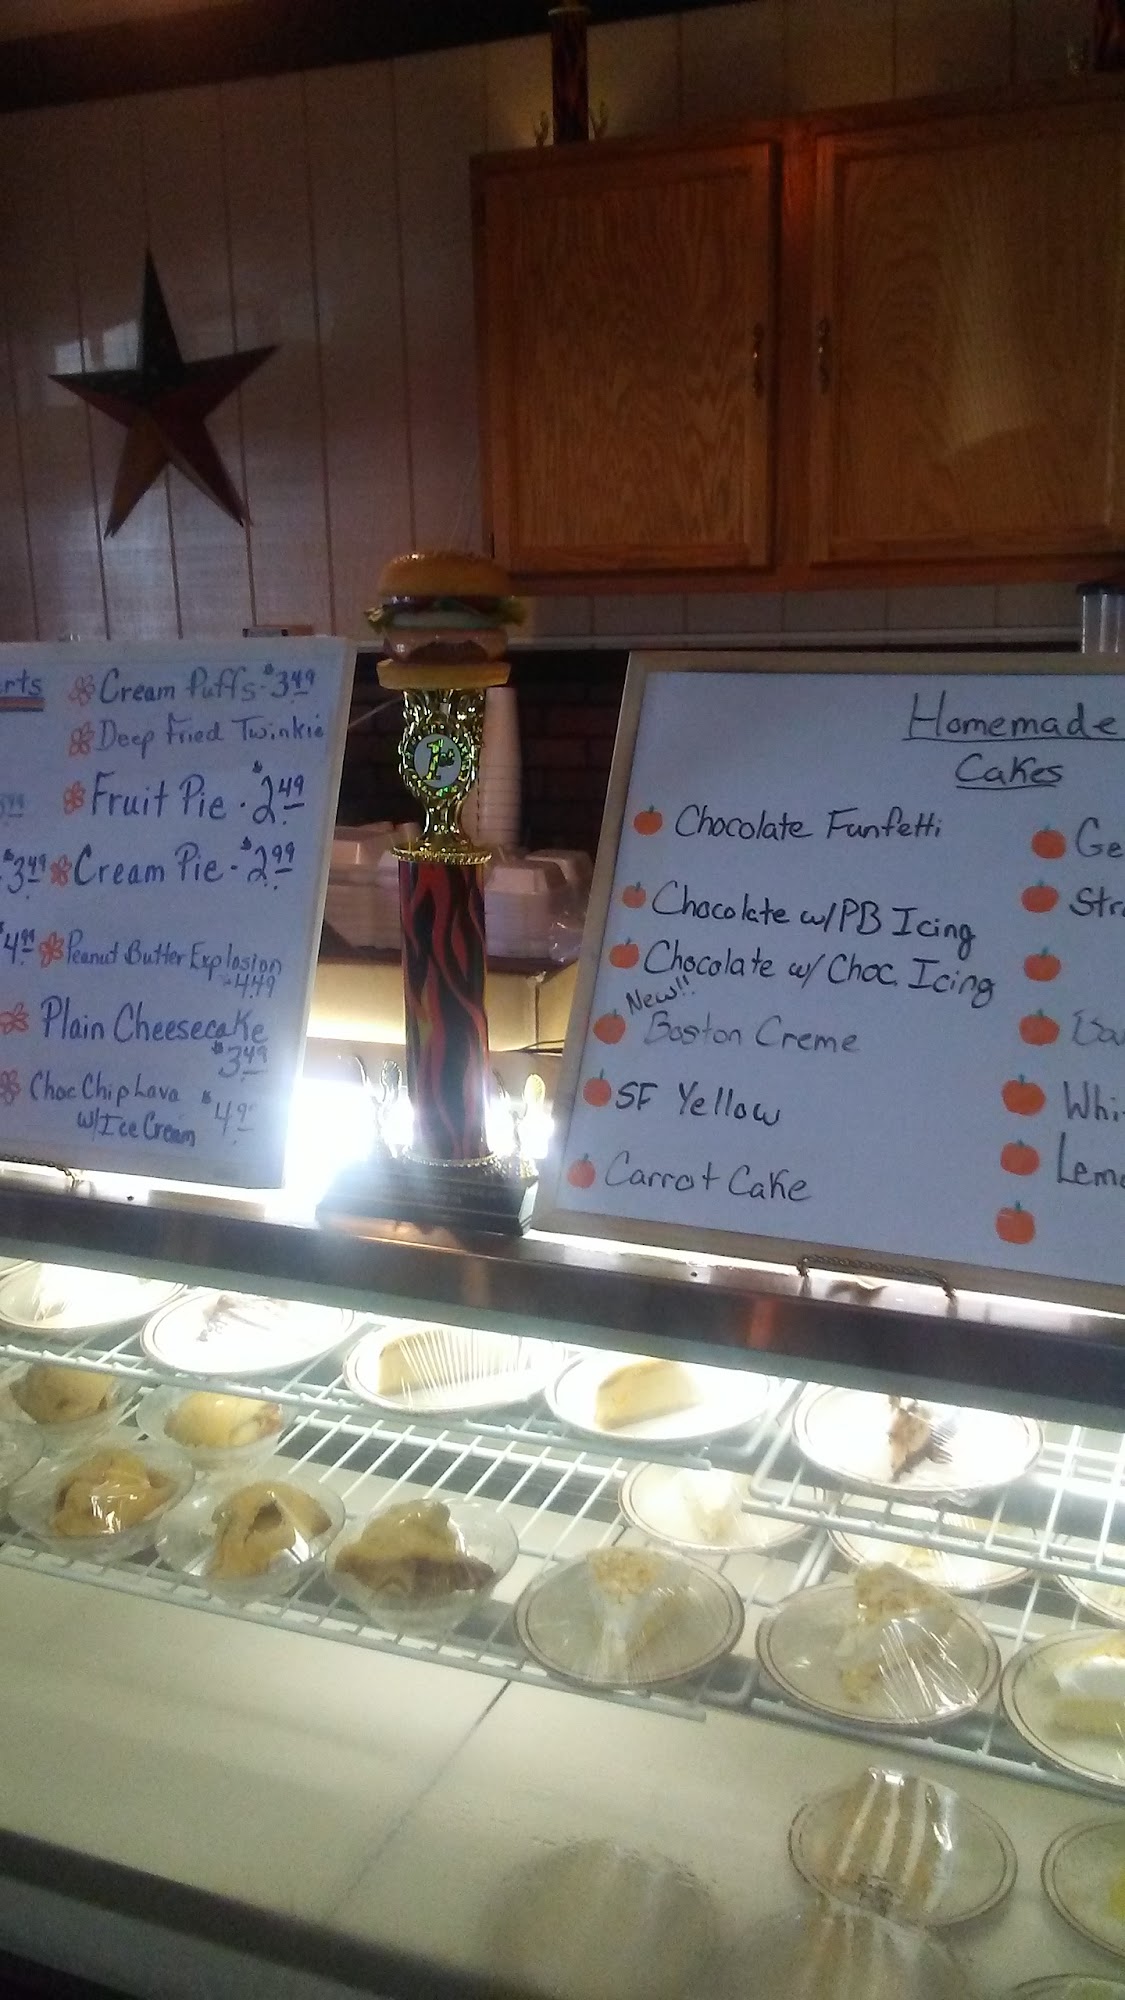 rts
Cream Puffs - $3.49
Deep Fried Twinkie
Fruit Pie - $2.49
$3.49 Cream Pie - $2.99
Peanut Butter Explosion
4.49
Plain Cheesecake
$3.49
Choc Chip Lava
w/Ice Cream
1st
Homemade
Cakes
Chocolate Funfetti
Chocolate w/PB Icing
Chocolate w/ Choc. Icing
New!!
Boston Creme
SF Yellow
Carrot Cake
Ge
Str
Whi
Lem